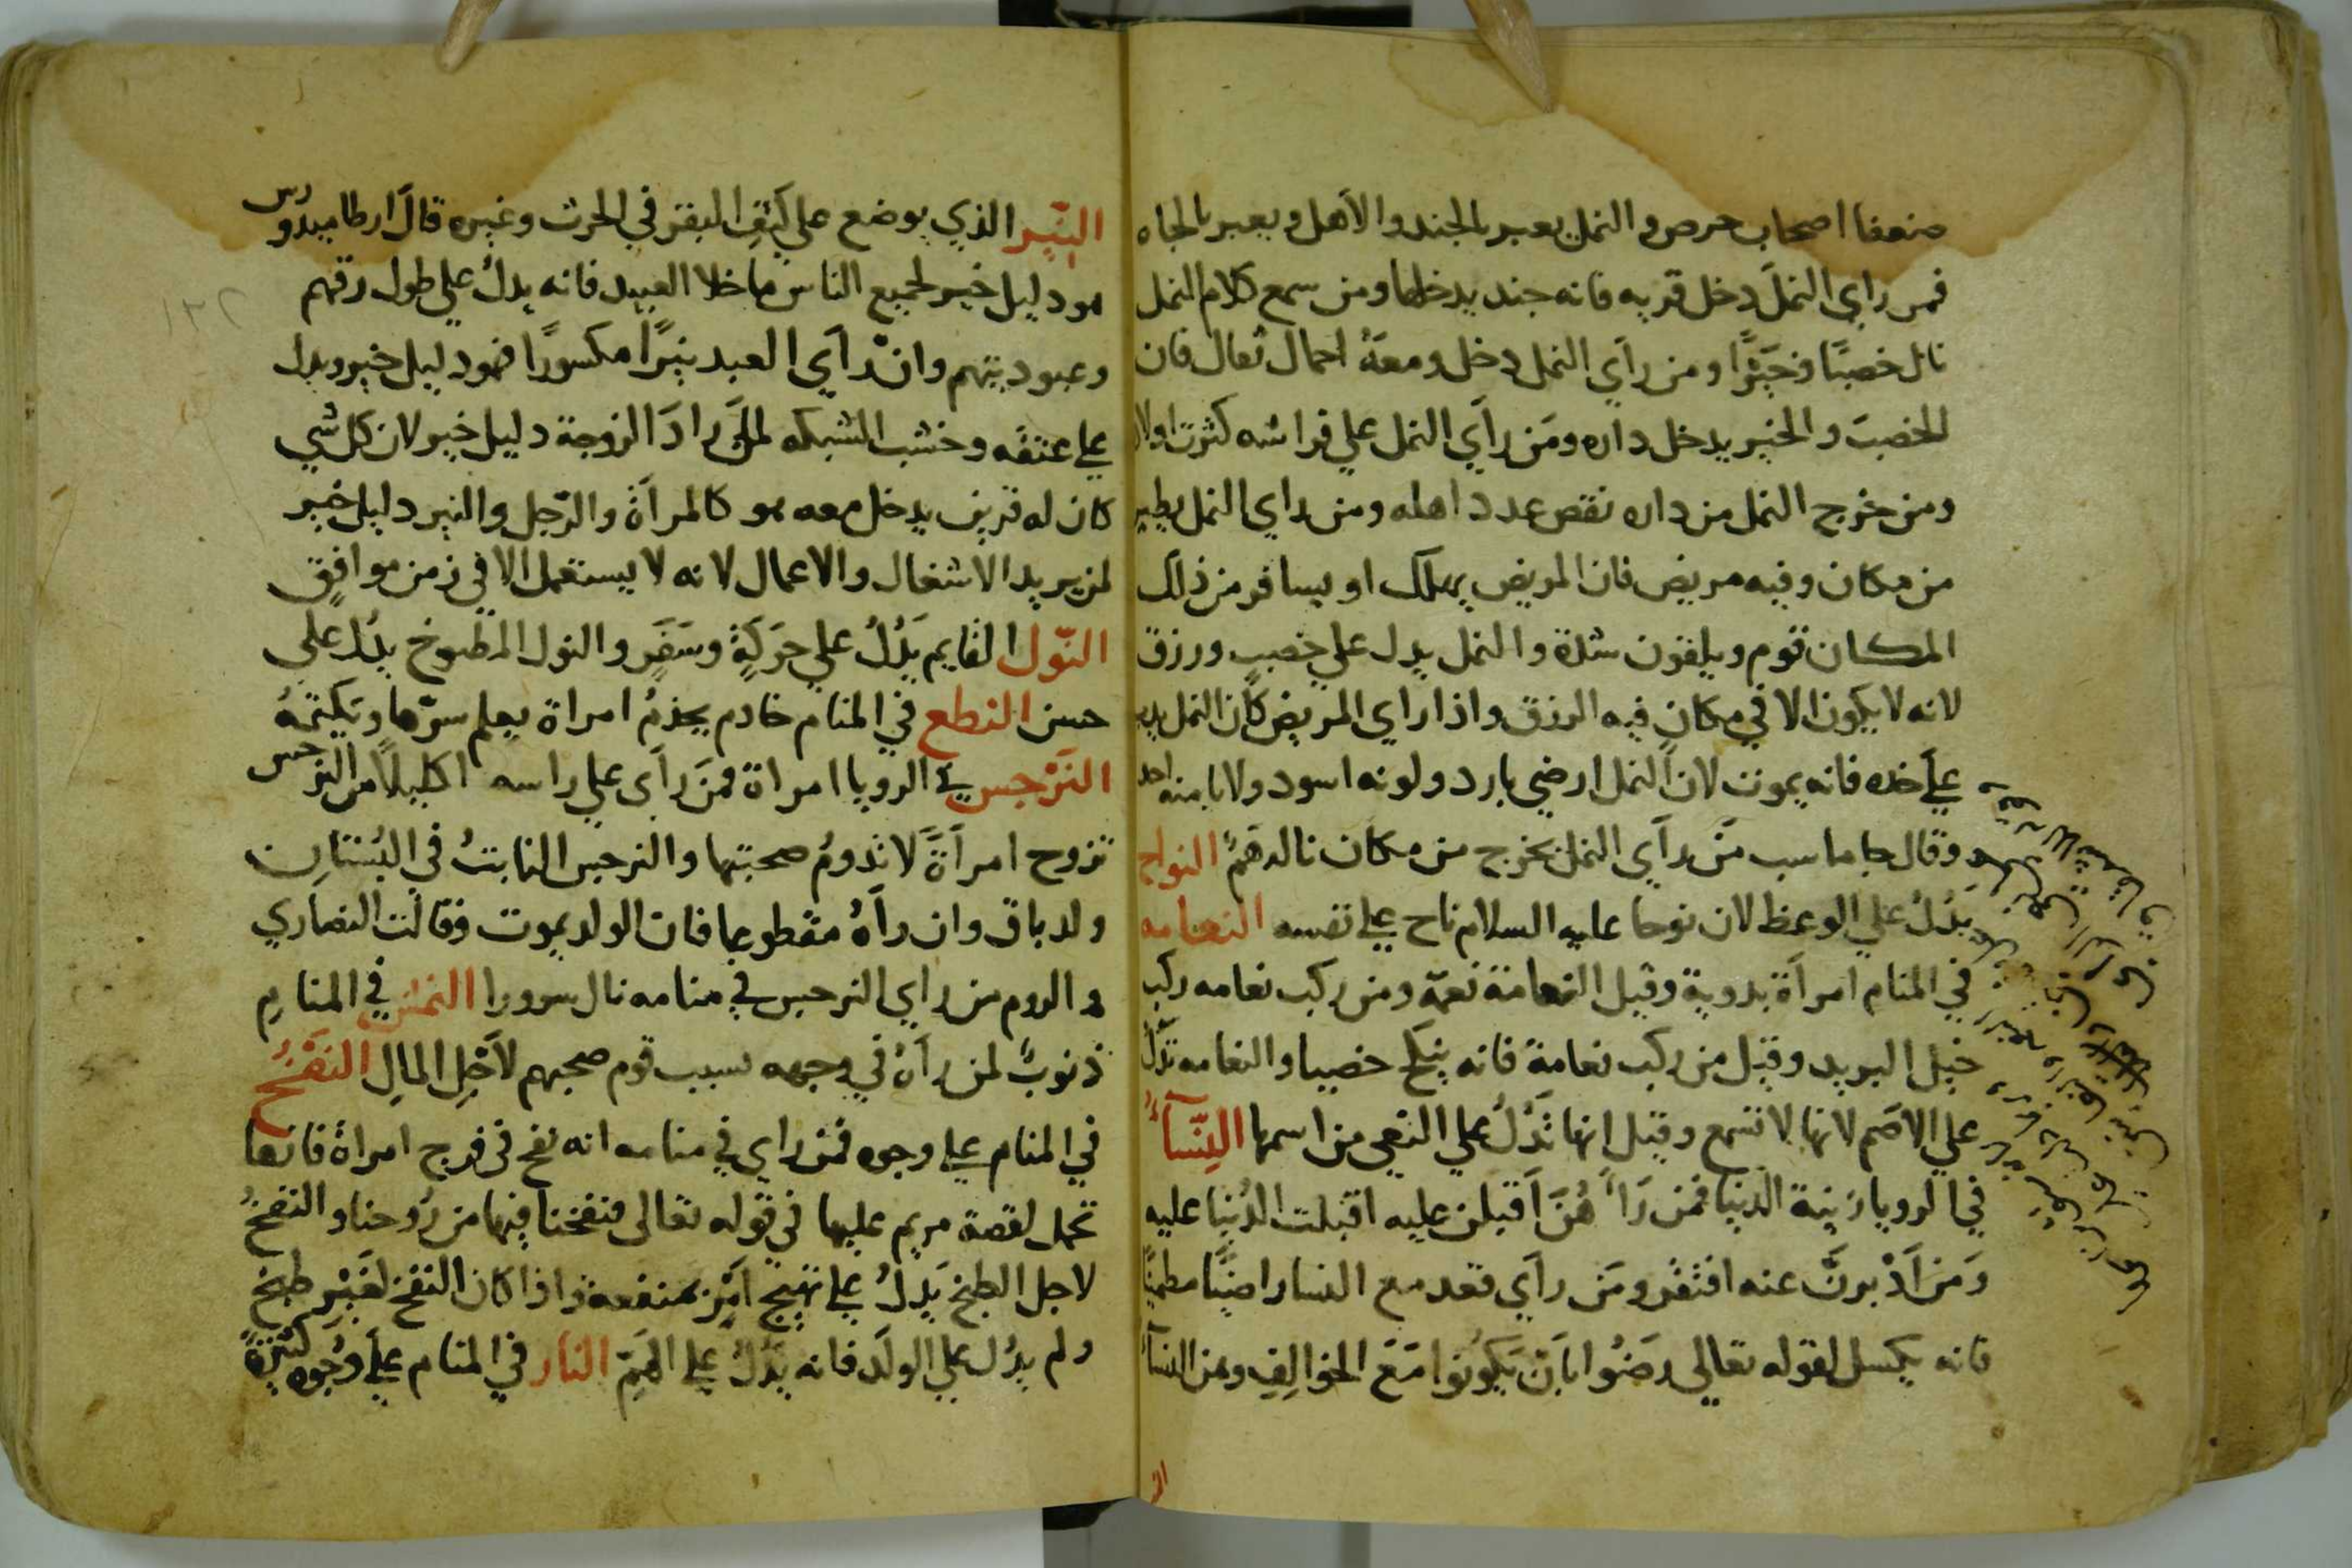 ضعفا اصحاب حرص و النمل يعبر بالجند والاهل ويعبر بالحياه
فمن راي النملَ دخل قريه فانه جند يدخلها ومن سمع كلام النمل
نال خصبًا وخيرًا ومن رآي النمل دخل ومعهُ احمال ثقال فان
الخصبَ والخير يدخل داره ومَن رآي النمل علي فراشه كثرت اولا
ومن خرج النمل من داره نقص عدد اهله ومن راي النمل يطير
من مكان وفيه مريض فان المريض يهلك او يسافر من ذلك
المكان قوم ويلقون شدة والنمل يدل علي خصبٍ ورزق
لانه لا يكون الا في مكان فيه الرزق واذا راي المريض كان النمل يدب
علي خده فانه يموت لان النمل ارضي بارد ولونه اسود ولا يا منه احد
وقال جاماسب مَن رآي النمل يخرج من مكان نالهَ همٌّ النواح
يَدُلُ علي الوعظ لان نوحا عليه السلام ناح علي نفسه النعامه
في المنام امرآة بدوية وقيل النعامة نعمة ومن ركب نعامه ركب
خيل البريد وقيل من ركب نعامة فانه ينكح خصيا والنعامه تدل
علي الاصم لانها لا تسمع وقيل انها تدُلُ علي النعي من اسمها النِّسآءُ
في الرويا زينة الدنيا فمن رَآهُنَّ اَقبلن عليه اقبلت الدُنيا عليه
وَمن اَدْبرنَّ عنه افتقر ومَن رآي قعد مع النسا راضيًا مطمئنًا
فانه يكسل لقوله تعالي رضَوُا باَن يَكونوا مَعَ الخوالِفِ ومن النسآء
النِّير الذي يوضع علي كتِفِ البقر في الحرث وغيره قالَ ارطاميدورس
هو دليل خير لجميع الناس ما خلا العبيد فانه يدلُ علي طول رقهم
وعبوديتهم وان رآي العبد نيرًا مكسورًا فهو دليل خير ويدل
علي عتقه وخشب الشبكه لمن ارادَ الزوجة دليل خير لان كل شي
كان له قرين يدخل معه هو كالمرآة والرّجل والنير دليل خير
لمن يريد الاشغال والاعمال لانه لا يستعمل الا في زمن موافقٍ
النّول القايم يَدُلُ علي حَرَكَةٍ وسَفَرٍ والنول المطبوخ يدُل علي
حسن النطع في المنام خادم يخدمُ امراة يعلم سرّها ويَكتمهُ
النَرْجس في الرويا امراة فمَن رآى علي راسه اكليلًا من النرجس
تزوج امرآةً لا تدومُ صحبتها والنرجس النابتُ في البُستانِ
ولد باق وان رآهُ مقطوعا فان الولد يموت وقالت النصاري
والروم من راي النرجس في منامه نال سرورا النمش في المنامِ
ذنوبٌ لمن رآهُ في وجهه بسبب قوم صحبهم لاَجلِ المالِ النَفْخُ
في المنام علي وجوه فمن راي في منامه انه نفخ في فرج امراة فانها
تحمل لقصة مريم عليها في قوله تعالى فنفخنا فيها من رُوحنا والنفخُ
لاجل الطبخ يَدلُ علي تهيج اَمْرٍ بمنفعة واذا كان النفخ لغَيْرِ طبخ
ولم يدُل علي الولَد فانه يَدُلُ علي الهَمِّ النار في المنام علي وجُوه كثيرةٍ
١٣٢